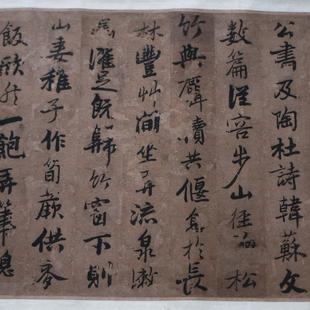 公書及陶杜詩韓蘇文
數篇從容步山徑撫松
竹與麛犢共偃息於長
林豐草間坐弄流泉漱
齒濯足既歸竹窗下則
山妻稚子作筍蕨供麥
飯欣然一飽弄筆窗